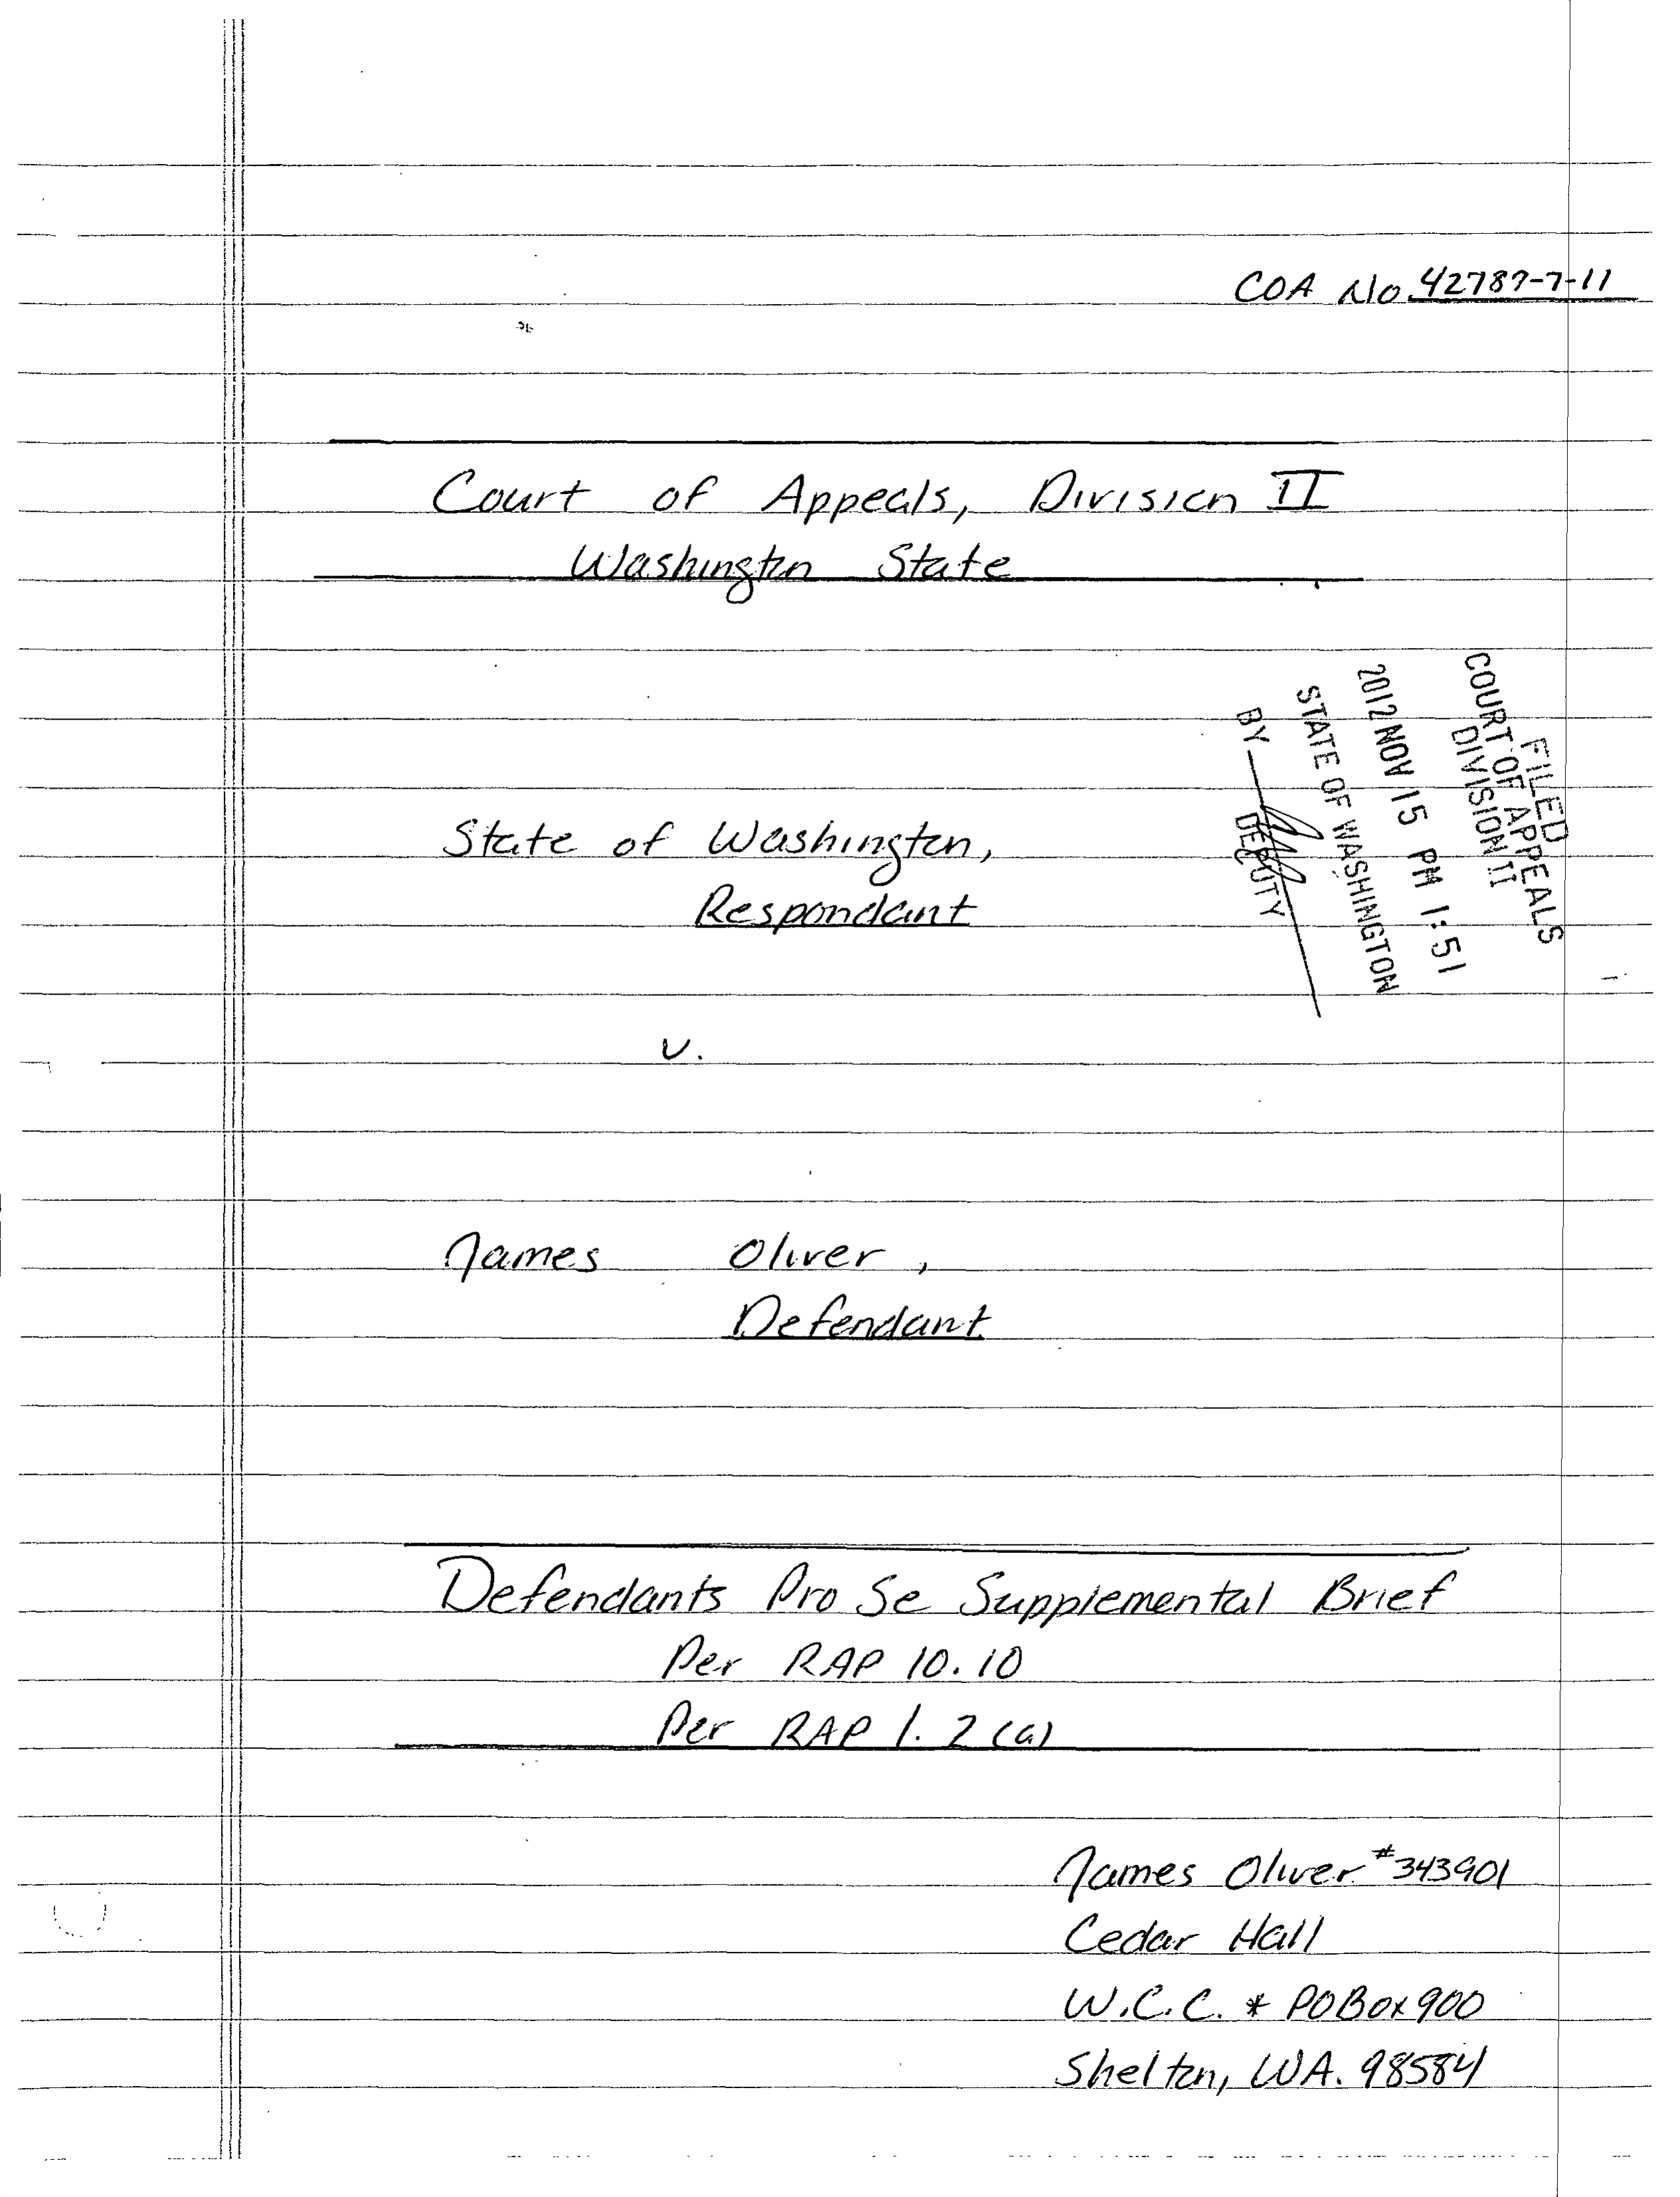 COA No. 42787-7-11
Court of Appeals, Division II
Washington State
FILED
COURT OF APPEALS
DIVISION II
2012 NOV 15 PM 1:51
STATE OF WASHINGTON
BY
DEPUTY
State of Washington,
Respondant
v.
James Oliver,
Defendant
Defendants Pro Se Supplemental Brief
Per RAP 10.10
Per RAP 1.2(a)
James Oliver #343901
Cedar Hall
W.C.C. * PO Box 900
Shelton, WA. 98584